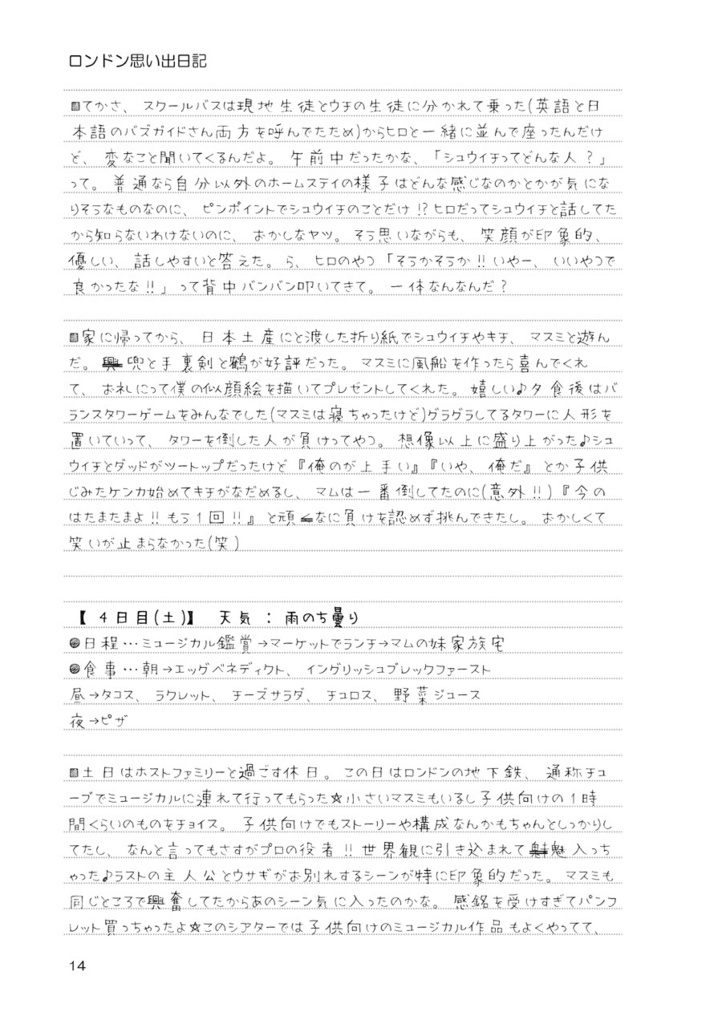 ロンドン思い出日記
▧てかさ、スクールバスは現地生徒とウチの生徒に分かれて乗った(英語と日
本語のバズガイドさん両方を呼んでたため)からヒロと一緒に並んで座ったんだけ
ど、変なこと聞いてくるんだよ。午前中だったかな、「シュウイチってどんな人?」
って。普通なら自分以外のホームステイの様子はどんな感じなのかとかが気にな
りそうなものなのに、ピンポイントでシュウイチのことだけ!?ヒロだってシュウイチと話してた
から知らないわけないのに、おかしなヤツ。そう思いながらも、笑顔が印象的、
優しい、話しやすいと答えた。ら、ヒロのやつ「そうかそうか!!いやー、いいやつで
良かったな!!」って背中バンバン叩いてきて。一体なんなんだ?
▧家に帰ってから、日本土産にと渡した折り紙でシュウイチやキチ、マスミと遊ん
だ。興兜と手裏剣と鶴が好評だった。マスミに風船を作ったら喜んでくれ
て、お礼にって僕の似顔絵を描いてプレゼントしてくれた。嬉しい♪夕食後はバ
ランスタワーゲームをみんなでした(マスミは寝ちゃったけど)グラグラしてるタワーに人形を
置いていって、タワーを倒した人が負けってやつ。想像以上に盛り上がった♪シュ
ウイチとダッドがツートップだったけど『俺のが上手い』『いや、俺だ』とか子供
じみたケンカ始めてキチがなだめるし、マムは一番倒してたのに(意外!!)『今の
はたまたまよ!!もう1回!!』と頑なに負けを認めず挑んできたし。おかしくて
笑いが止まらなかった(笑)
【4日目(土)】 天気:雨のち曇り
◍日程…ミュージカル鑑賞→マーケットでランチ→マムの妹家族宅
◍食事…朝→エッグベネディクト、イングリッシュブレックファースト
昼→タコス、ラクレット、チーズサラダ、チュロス、野菜ジュース
夜→ピザ
▧土日はホストファミリーと過ごす休日。この日はロンドンの地下鉄、通称チュ
ーブでミュージカルに連れて行ってもらった☆小さいマスミもいるし子供向けの1時
間くらいのものをチョイス。子供向けでもストーリーや構成なんかもちゃんとしっかりし
てたし、なんと言ってもさすがプロの役者!!世界観に引き込まれて魅魅入っち
ゃった♪ラストの主人公とウサギがお別れするシーンが特に印象的だった。マスミも
同じところで興奮してたからあのシーン気に入ったのかな。感銘を受けすぎてパンフ
レット買っちゃったよ☆このシアターでは子供向けのミュージカル作品もよくやってて、
14